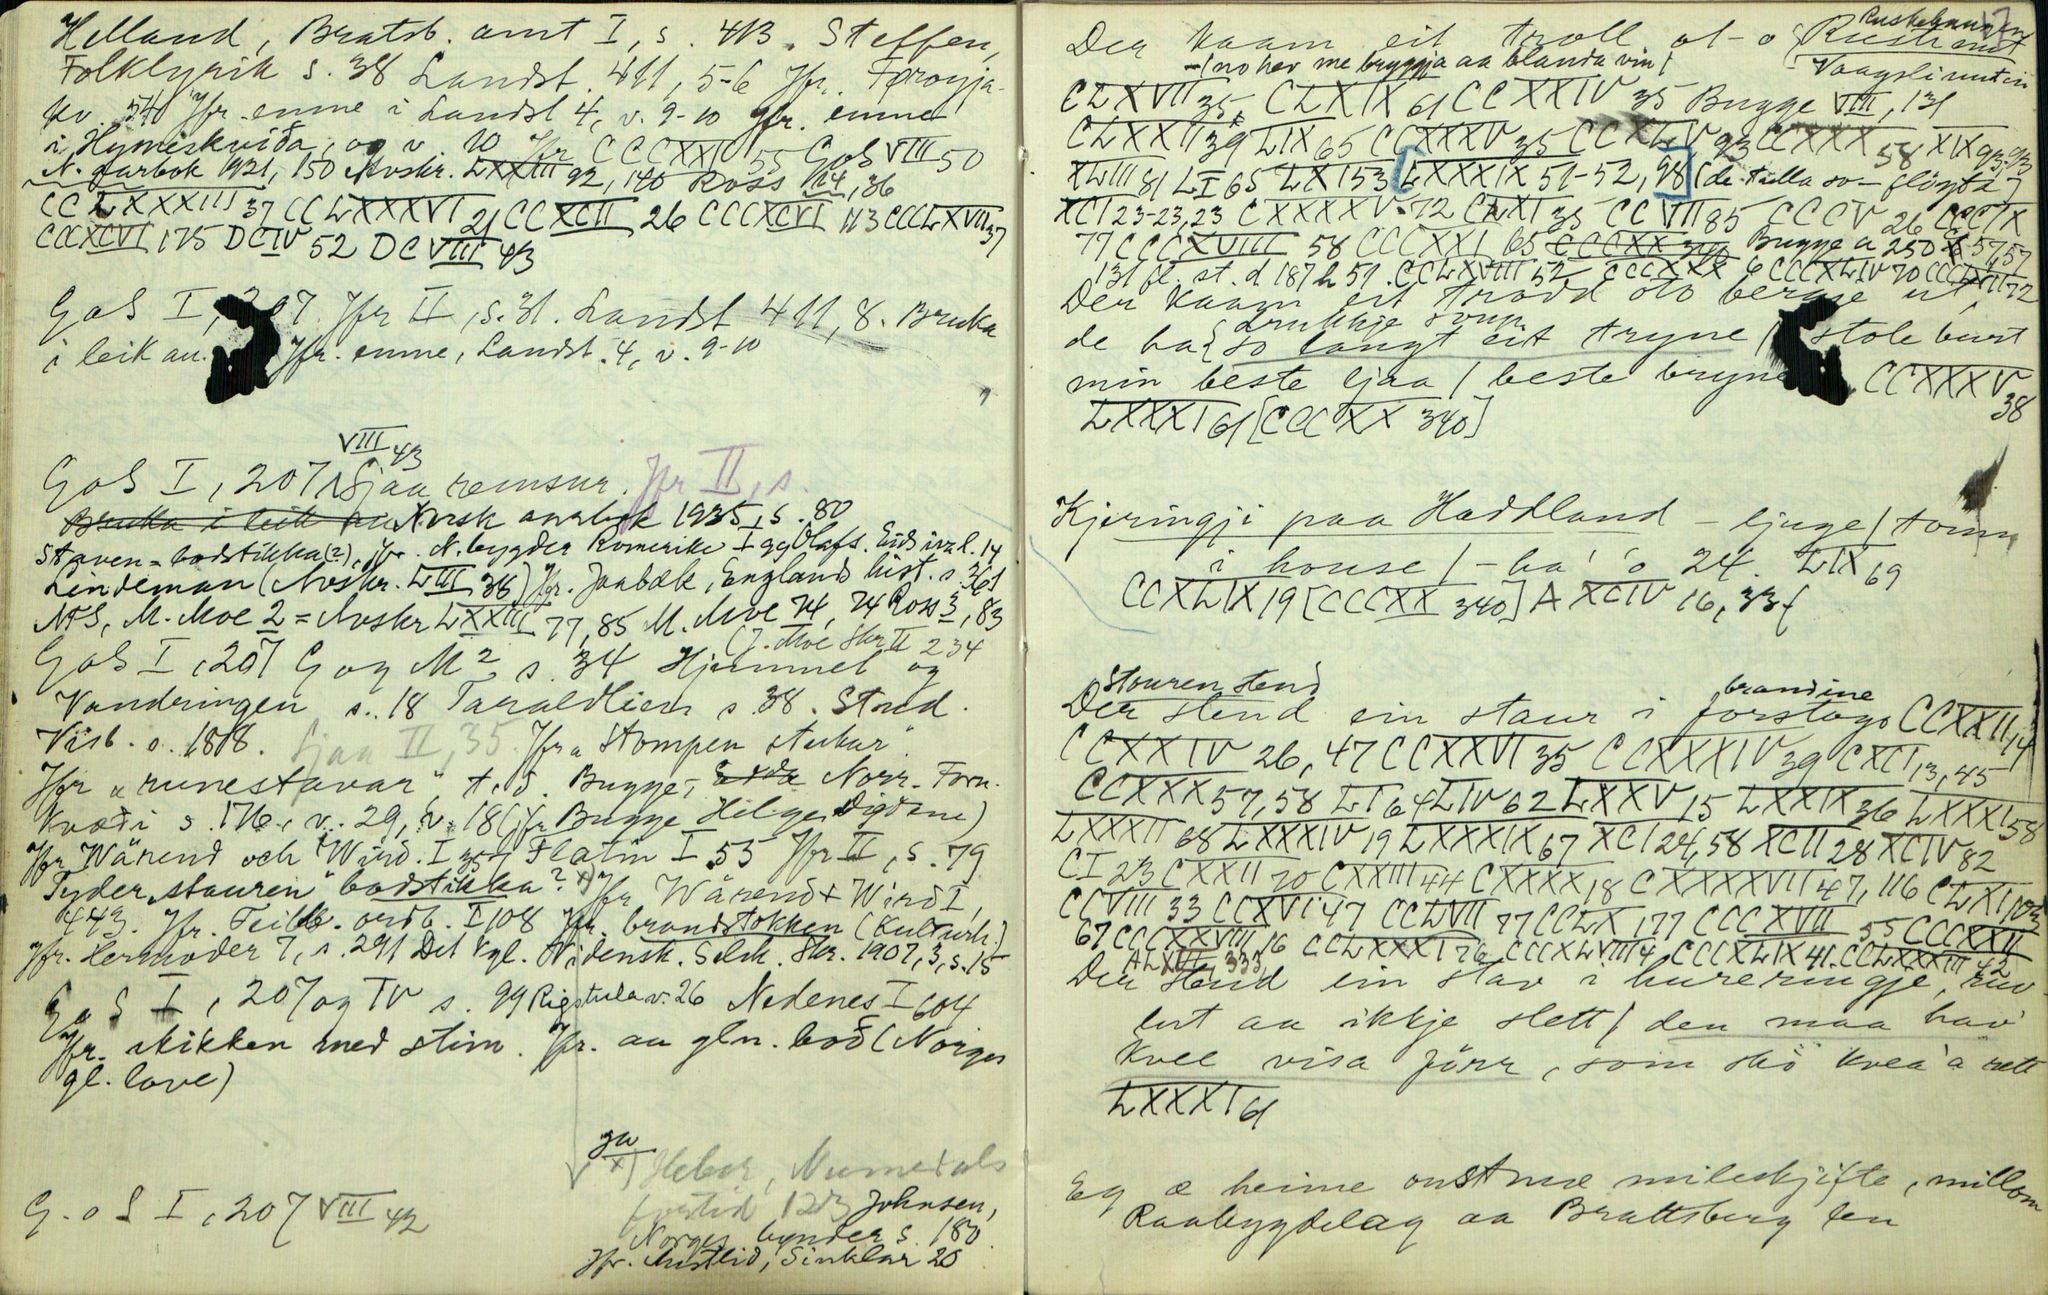 Helland, Bratsb. amt I, s. 413. Steffen,
Folklyrik s. 38 Landst. 411, 5-6 Jfr. Føroyja-
kv. 54 Jfr. emne i Landst 4, v. 9-10 Jfr. emne
i Hymeskviða, og v. 10 Jfr CCCXXI 55 GoS VIII 50
N. aarbok 1921, 150 Avskr. LXXIII 92, 140 Ross 36
CCLXXXIII 37 CCLXXXVI 21 CCXCII 26 CCCXCVI 113 CCCLXVII 37
CCCXCVI 175 DCIV 52 DCVIII 43
GoS I, 207 Jfr II, s. 31. Landst 411, 8. Bruka
i leik au. Jfr. emne, Landst. 4, v. 9-10
VIII 43
GoS I, 207 Sjaa remsur. Jfr II, s.
Bruka i leik au Norsk aarbok 1935, s. 80
Staven = bodstikka (?), jfr. N. bygder Romerike I 99 Olafs.
Lindeman (Avskr. LIII 38) Jfr. Jonbæk, Englands hist. s. 361
NFS, M. Moe 2 = Avskr LXXIII 77, 85 M. Moe 74, 74 Ross 3, 83
(J. Moe Skr II 234
GoS I, 207 G og M 2 s. 34 Hjemmet og
Vandringen s. 18 Taraldlien s. 38. Stud.
Visb. s. 1818. Sjaa II, 35. Jfr „Stompen stubar"
Jfr „runestavar", t. d. Bugge, Edda Norr. Forn.
kvæði s. 176, v. 29, s. 18 (jfr Bugge Helge Digtene)
Jfr Wärend och Wird. I 357 Flatin I 55 Jfr II, s. 79
Tyder „stauren" bodstikka? x) Jfr Wärend + Wird I,
443. Jfr. Feilb. ordb. I 108 Jfr. brandstokken (Kulturh.)
Jfr. Hermoder 7, s. 291 Det kgl. Vidensk. Selsk. Skr. 1907, 3, s. 15
G o S I, 207 og IV s. 99 Rigstula v. 26 Nedenes I 604
Jfr. skikken med stim. Jfr. au gln. boð (Norges
gl. love)
x) Heber, Numedals
fortid 123 Johnsen,
Norges bønder s. 180
Jfr. Austlid, Sinklar 20
G. o S I, 207 VIII 42
Der kaam eit troll ot - o
- (no hev me bryggja aa blanda vin)
Vaagslinuten
CLXVII 35 CLXIX 61 CCXXIV 35 Bugge VIII, 131
CLXXII 39 LIX 65 CCXXXV 35 CCXLV 93 CCXXX 58 XIX 93, 93
XLIII 81 LI 65 LXI 53 LXXXIX 51-52, 98 (de talla so - fløyta)
XCI 23-23, 23 CXXXXV 72 CLXI 35 CCVII 85 CCCV 26 CCCIX
77 CCCXVIII 58 CCCXXI 65 CCCXX 340 Bugge a 250 57, 57
131 fl. st. d 187 h 51. CCLXVIII 52 CCCXXX 6 CCCXLIV 70 72
Der kaam eit trødd oto bergje ut,
drukkje soup
de ha so langt eit tryne / stole burt
min beste ljaa / beste bryne CCXXXV 38
LXXXI 61 [CCCXX 340]
Kjeringji paa Haddland - ljuge / tonn
i house / - ha' o 24. LIX 69
CCXLIX 19 [CCCXX 340] A XCIV 16, 33 f
Stouren stend
brandine
Der stend ein staur i forstogo CCXXII, 14
CCXXIV 26, 47 CCXXVI 35 CCXXXIV 39 CXCI 13, 45
CCXXX 57, 58 LI 64 LIV 62 LXXV 15 LXXIX 36 LXXXI 58
LXXXII 68 LXXXIV 19 LXXXIX 67 XCI 24, 58 XCII 28 XCIV 82
CI 23 CXXII 70 CXXIII 44 CXXXX 18 CXXXXVII 47, 116 CLXI 103
CCVIII 33 CCXVI 47 CCLVII 77 CCLX 177 CCCXVII 55 CCCXXII
67 CCCXXVIII 16 CCLXXXI 76 CCCXLVIII 4 CCCXLIX 41 CCLXXXIII 42
ALXVII 333
Der stend ein stav i hureringje, riv-
ut aa ikkje slett / den maa hav'
kvee visa fórr, som sko kvea 'a rett
LXXXI 61
Eg æ heime mileskjifte, millom
Raabygdelag aa Brattsberg len